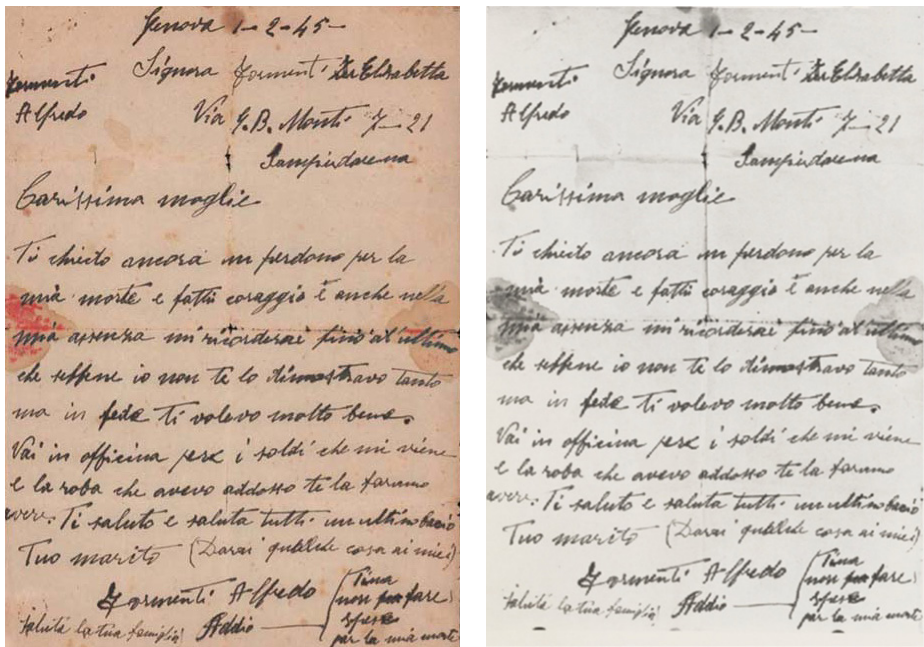 Genova 1-2-45-
Formenti Signora Formenti Elisabetta
Alfredo Via G.B. Monti 7-21
Sampierdarena
Carissima moglie
Ti chiedo ancora un perdono per la
mia morte e fatti coraggio è anche nella
mia assenza mi ricorderai fino al'ultimo
che seppene io non te lo dimostravo tanto
ma in fede ti volevo molto bene.
Vai in officina per i soldi che mi viene
e la roba che avevo addosso te la farano
avere. Ti saluto e saluta tutti un ultimo bacio
Tuo marito (Darai qualche cosa ai miei)
Formenti Alfredo
saluta la tua famiglia Addio
Tina
non fare
spese
per la mia morte
Genova 1-2-45-
Formenti Signora Formenti Elisabetta
Alfredo Via G.B. Monti 7-21
Sampierdarena
Carissima moglie
Ti chiedo ancora un perdono per la
mia morte e fatti coraggio è anche nella
mia assenza mi ricorderai fino al'ultimo
che seppene io non te lo dimostravo tanto
ma in fede ti volevo molto bene.
Vai in officina per i soldi che mi viene
e la roba che avevo addosso te la farano
avere. Ti saluto e saluta tutti un ultimo bacio
Tuo marito (Darai qualche cosa ai miei)
Formenti Alfredo
saluta la tua famiglia Addio
Tina
non fare
spese
per la mia morte